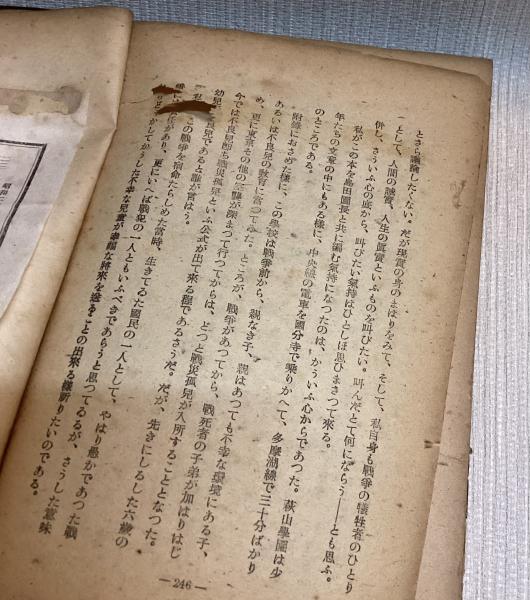 とさら議論したくない。だが現實の身のまはりをみて、そして、私自身も戰爭の犠牲者のひとり
として、人間の誠實、人生の眞實といふものを叫びたい。叫んだとて何にならう——とも思ふ。
併し、さういふ心の底から、叫びたい氣持はひとしほ思ひまさつて來る。
私がこの本を島田園長と共に編む氣持になつたのは、かういふ心からであつた。萩山學園は少
年たちの文章の中にもある様に、中央線の電車を國分寺で乗りかへて、多摩湖線で三十分ばかり
のところである。
附録におさめた様に、この學校は戰爭前から、親なき子、親はあつても不幸な環境にある子、
あるいは不良兒の教育に當つてゐた。ところが、戰爭があつてから、戰死者の子弟が加はりはじ
め、更に東京その他の空襲が深まつて行つてからは、どつと戰災孤兒が入所することとなつた。
今では不良兒即ち戰災孤兒といふ公式が出て來る程であるさうだ。だが、先きにしるした六歳の
幼兒を不良兒であると誰が言はう。
私は、この戰爭を宿命たらしめた當時、生きてゐた國民の一人として、やはり愚かであつた戰
任があり、更にいへば戰犯の一人ともいふべきであらうと思つてゐるが、さうした意味
かしてかうした不幸な兒童が幸福な將來を送ることの出來る様祈りたいのである。
—246—
昭和二